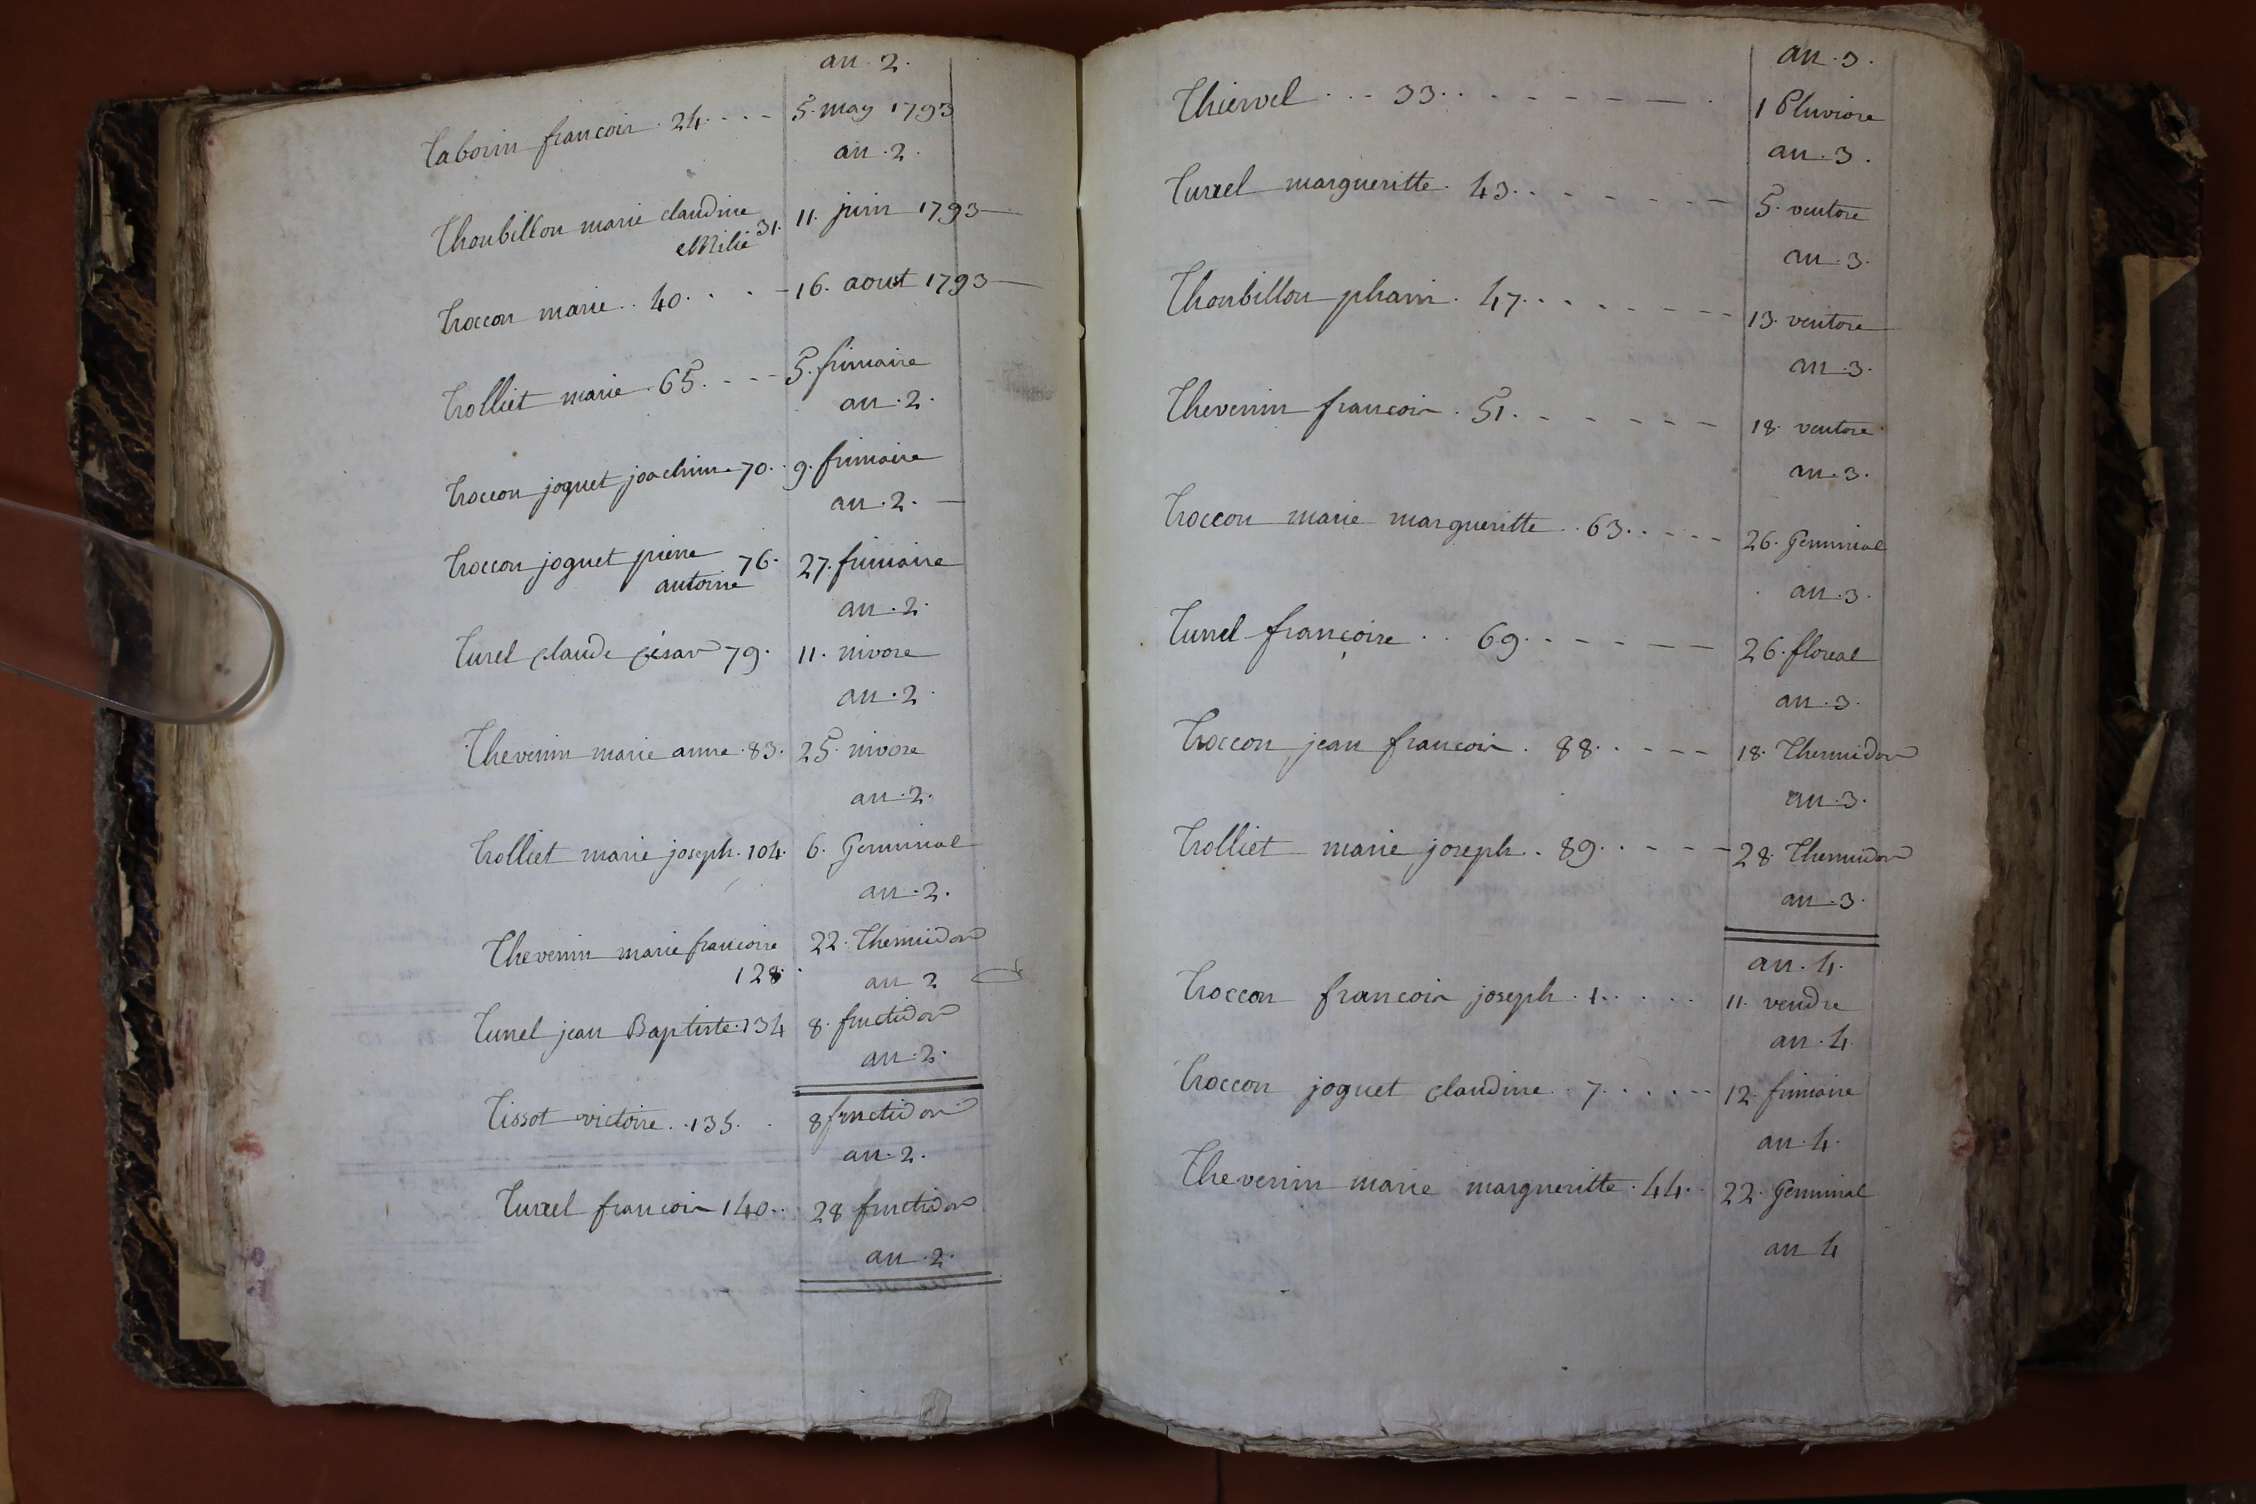 an . 2 .
Taborin francois . 24 . . . - 5 . may 1793
an . 2 .
Thoubillon marie claudine
emilie 31 . 11 . juin 1793
Troccon marie . . 40 . . . . 16 . aoust 1793
Trolliet marie . 65 . - - - 5 . frimaire
an . 2 .
Troccon joguet joachim . 70 . . 9 . frimaire
an . 2 .
Troccon joguet pierre
antoine 76 . 27 . frimaire
an . 2 .
Turel claude césar 79 . 11 . nivose
an . 2 .
Thevenin marie anne . 83 . 25 . nivose
an . 2 .
Trolliet marie joseph . 104 . 6 . Germinal
an . 2 .
Thevenin marie francoise 22 . Thermidor
128 . an 2
Turrel jean Baptiste . 134 8 . fructidor
an . 2 .
Tissot victoire . . 135 . . 8 fructidor
an . 2 .
Turrel francois 140 . . 28 fructidor
an . 2 .
an . 3 .
. . . 33 . . - - - - - 1 Pluviose
an . 3 .
Turrel margueritte . 43 . . - - - - - 5 . ventose
an . 3 .
Thoubillon . 47 . . . . - - - - 13 . ventose
an . 3 .
Thevenin francois . 51 . - - - - - - 18 . ventose
an . 3 .
Troccon marie margueritte . . 63 . . - - - 26 . Germinal
an . 3 .
Turrel françoise . . 69 . . - - - - 26 . floreal
an . 3 .
Troccon jean francois . 88 . . . - - 18 . Thermidor
an . 3 .
Trolliet marie joseph . 89 . . - - - 28 . Thermidor
an . 3 .
an . 4 .
Troccon francois joseph . 1 . . . . . 11 . vendre
an . 4 .
Troccon joguet claudine . . 7 . . . . - - 12 . frimaire
an . 4 .
Thevenin marie margueritte . 44 . . 22 . Germinal
an 4